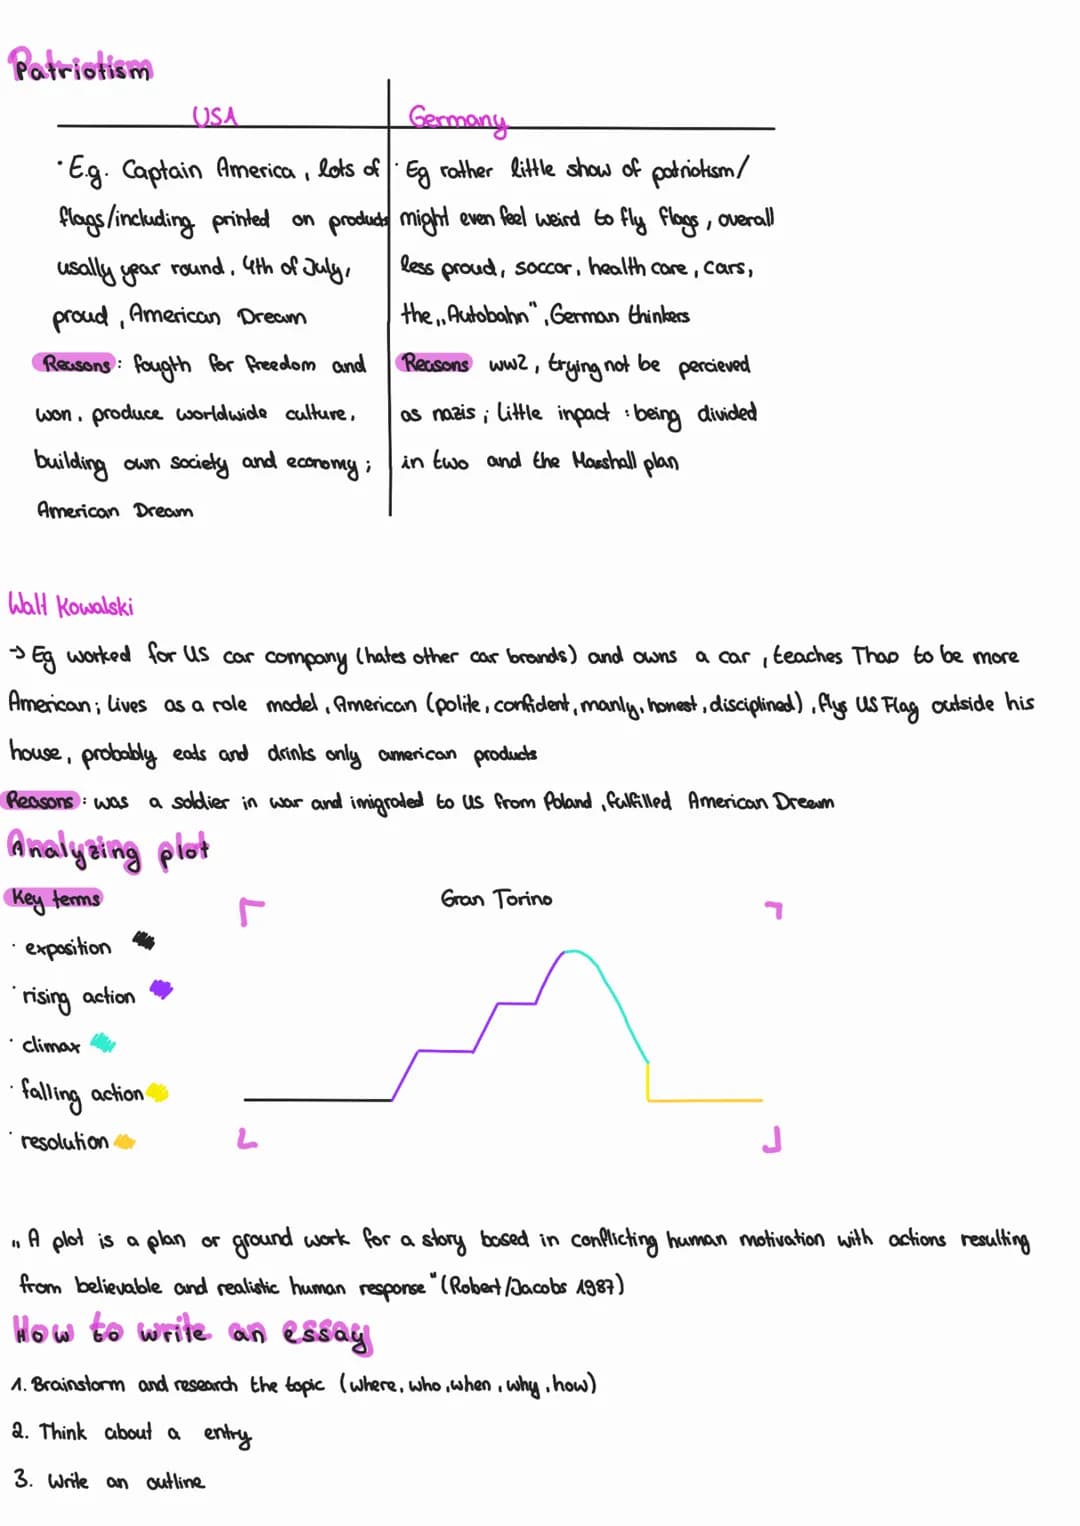 Patriotism
USA
· E.g. Captain America, lots of
flags/including printed on products
usally year round, 4th of July,
proud, American Dream
Reasons: fougth for freedom and
won, produce worldwide culture,
building own society and economy;
American Dream
Germany
· Eg rather little show of patriotism/
might even feel weird to fly flags, overall
less proud, soccor, health care, cars,
the „Autobahn", German thinkers
Reasons ww2, trying not be percieved
as nazis; little inpact: being divided
in two and the Marshall plan
Walt Kowalski
→ Eg worked for US car company (hates other car brands) and owns a car, teaches Thao to be more
American; lives as a role model, American (polite, confident, manly, honest, disciplined), flys US Flag outside his
house, probably eats and drinks only american products
Reasons: was a soldier in war and imigrated to US from Poland, fulfilled American Dream
Analyzing plot
Key terms
· exposition
· rising action
· climax
· falling action
· resolution
Gran Torino
„A plot is a plan or ground work for a story based in conflicting human motivation with actions resulting
from believable and realistic human response" (Robert/Jacobs 1987)
How to write an essay
1. Brainstorm and research the topic (where, who, when, why, how)
2. Think about a entry
3. Write an outline